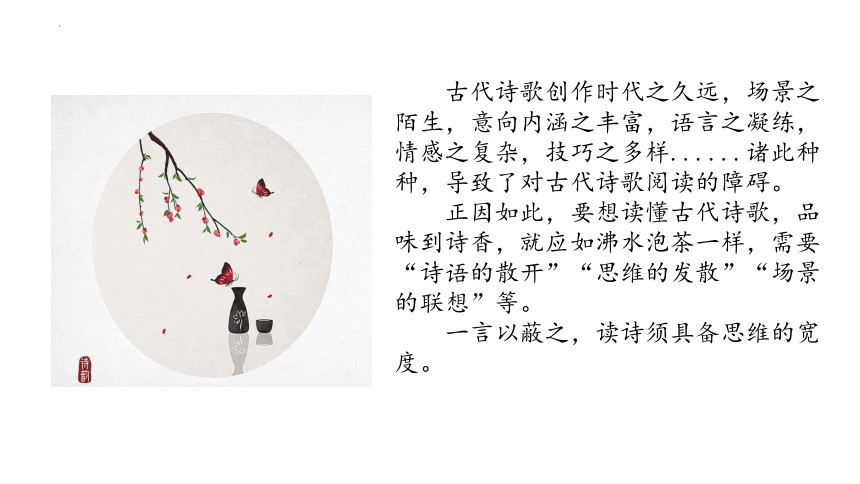 古代诗歌创作时代之久远，场景之
陌生，意向内涵之丰富，语言之凝练，
情感之复杂，技巧之多样......诸此种
种，导致了对古代诗歌阅读的障碍。
正因如此，要想读懂古代诗歌，品
味到诗香，就应如沸水泡茶一样，需要
“诗语的散开”“思维的发散”“场景
的联想”等。
一言以蔽之，读诗须具备思维的宽
度。
诗韵